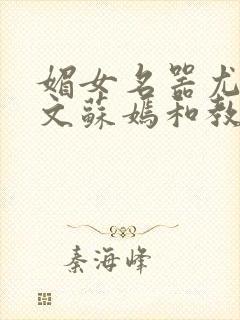 媚女名器尤
文蘇媽和教
秦海峰